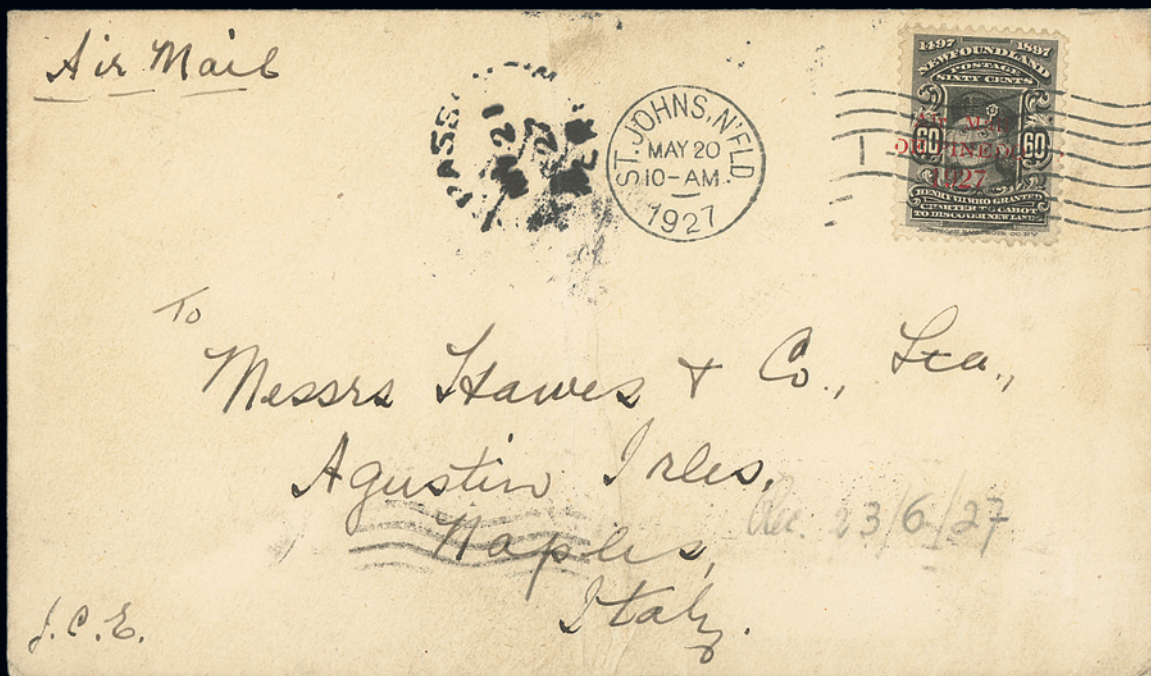 Air Mail
ST. JOHNS, N'FLD.
MAY 20
10-AM
1927
21
27
1497 1897
NEWFOUNDLAND
POSTAGE
SIXTY CENTS
AIR MAIL
DE PINEDO
60 60
1927
HENRY VII WHO GRANTED
CHARTER TO CABOT
TO DISCOVER NEW LAND
To
Messrs Hawes & Co.,
Agustin Irles,
Naples,
Italy.
Rec. 23/6/27
J.C.E.